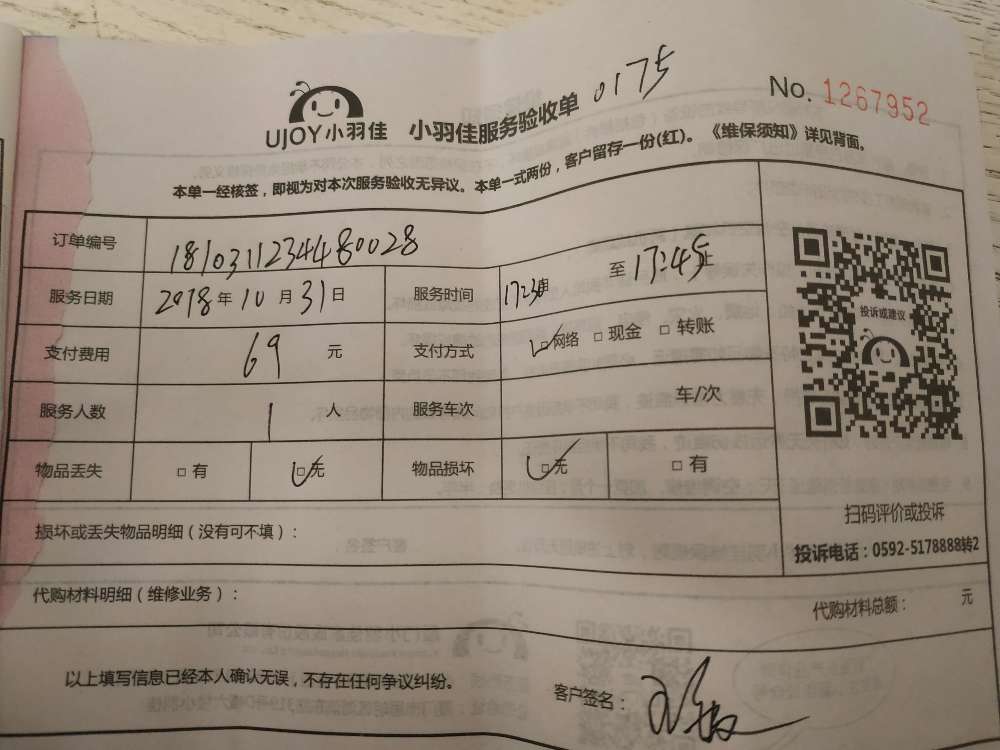 UJOY小羽佳 小羽佳服务验收单 0175 No. 1267952
本单一经核签，即视为对本次服务验收无异议。本单一式两份，客户留存一份(红)。《维保须知》详见背面。
订单编号 1810311234480028
服务日期 2018年10月31日 服务时间 17:230 至 17:45止
支付费用 69 元 支付方式 □网络 □现金 □转账
服务人数 1 人 服务车次 车/次
物品丢失 □有 □无 物品损坏 □无 □有
投诉或建议
扫码评价或投诉
投诉电话：0592-5178888转2
损坏或丢失物品明细（没有可不填）：
代购材料明细（维修业务）：
代购材料总额： 元
以上填写信息已经本人确认无误，不存在任何争议纠纷。
客户签名：